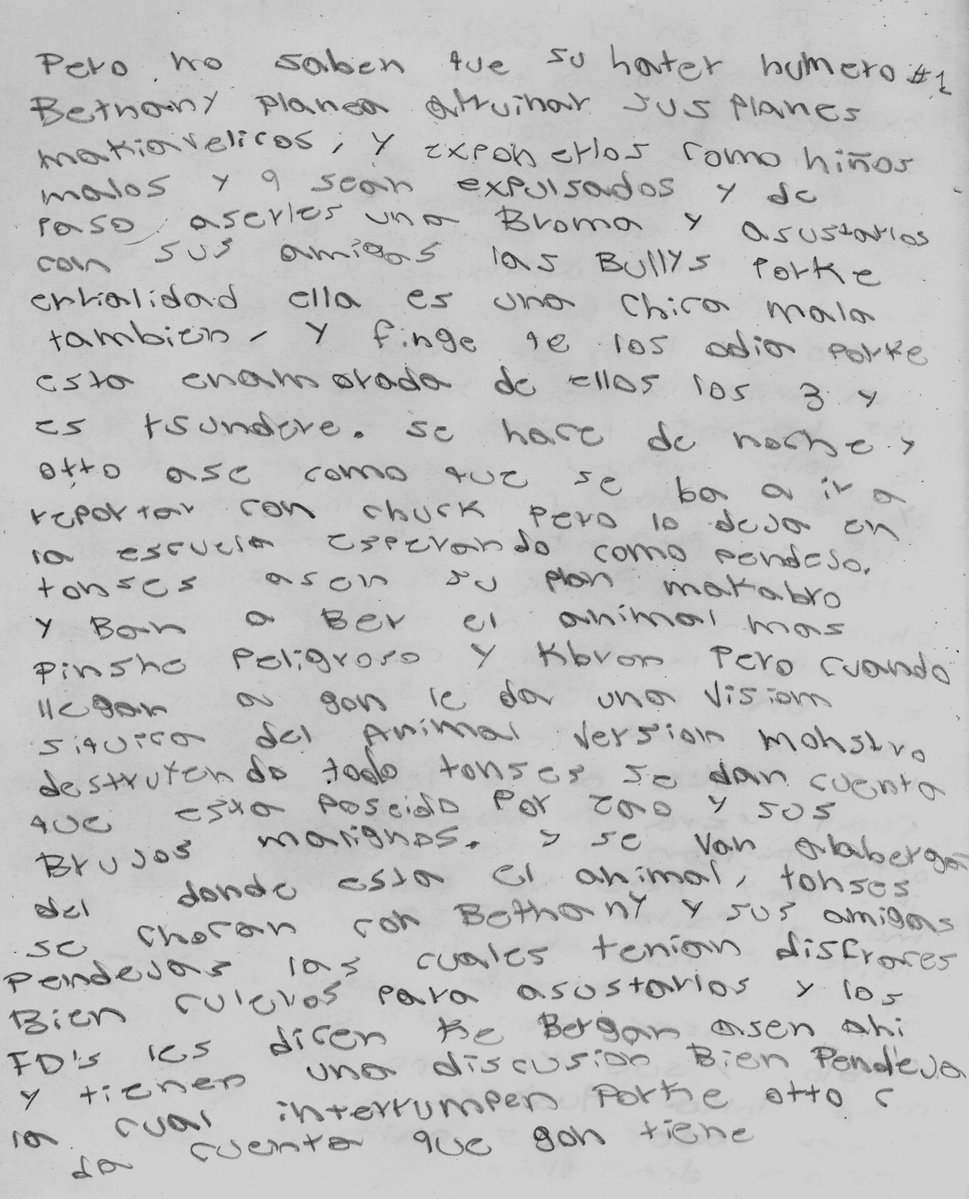 Pero no saben que su hater numero #1
Bethany planea arruinar sus planes
makiavelicos, y exponerlos como niños
malos y q sean expulsados y de
paso aserles una Broma y asustarlos
con sus amigas las Bullys porke
enrialidad ella es una chica mala
tambien, y finge qe los odia porke
esta enamorada de ellos los 3 y
es tsundere. se hace de noche y
otto ase como que se ba a ir a
reportar con chuck pero lo deja en
la escuela esperando como pendejo.
tonses asen su plan makabro
y Ban a Ber el animal mas
pinshe peligroso y Kbron pero cuando
llegan a gon le da una vision
siquica del Animal version monstro
destrullendo todo tonses se dan cuenta
que esta poseido por zao y sus
Brujos malignos. y se van alabergan
del donde esta el animal, tonses
se chocan con Bethany y sus amigas
pendejas las cuales tenian disfraces
Bien culeros para asustarlos y los
FD's les dicen ke Bergan asen ahi
y tienen una discusion Bien Pendeja
la cual interrumpen porke otto c
da cuenta que gon tiene